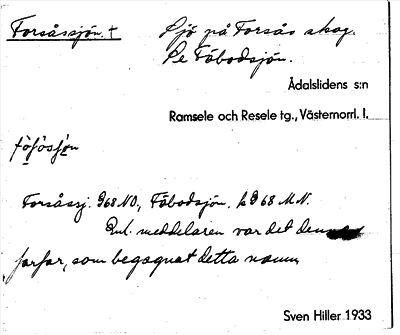 Forsåssjön. +
Sjö på Forsås skog.
Se Fäbodsjön.
Ådalslidens s:n
Ramsele och Resele tg., Västernorrl. l.
Forsåssj. 968 NO., Fäbodsjön, k 968 M.N.
Enl. meddelaren var det
farfar, som begagnat detta namn
Sven Hiller 1933